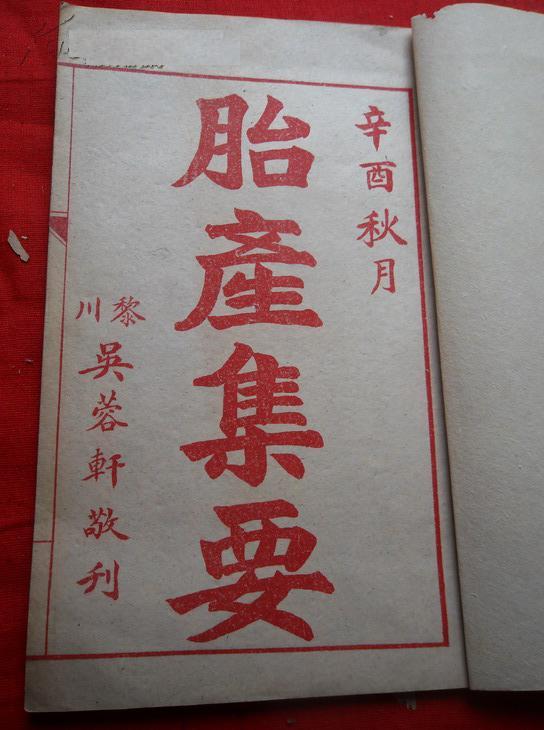 辛酉秋月
胎產集要
黎川
吳蓉軒敬刋